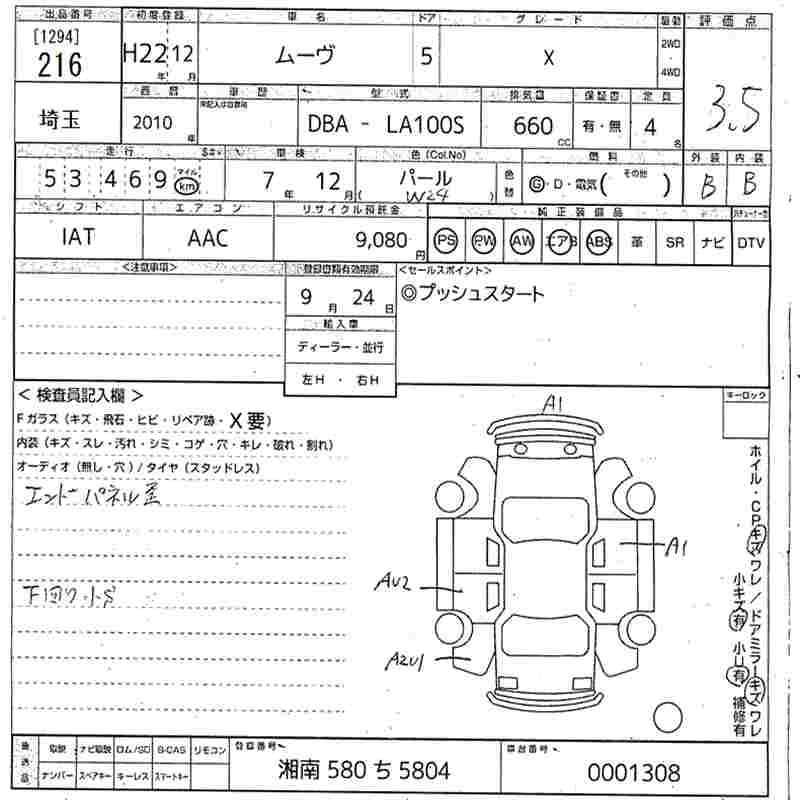 出品番号 初度登録 車名 ドア グレード 駆動 評価点
[1294]
216 H22年 12月 ムーヴ 5 X 2WD・4WD 3.5
西暦 車歴 型式 排気量 保証書 定員
埼玉 2010年 DBA - LA100S 660cc 有・無 4名
走行 車検 色(Col.No) 燃料 外装 内装
53469 マイル km 7年 12月 パール (W24) 色替 G・D・電気(その他) B B
シフト エアコン リサイクル預託金 純正装備品
IAT AAC 9,080円 PS PW AW エアB ABS 革 SR ナビ DTV
<注意事項> 登録書類有効期限 <セールスポイント>
9月 24日 ◎プッシュスタート
輸入車
ディーラー・並行
左H ・ 右H
< 検査員記入欄 > キーロック
Fガラス(キズ・飛石・ヒビ・リペア跡・X要)
内装(キズ・スレ・汚れ・シミ・コゲ・穴・キレ・破れ・割れ)
オーディオ(無し・穴)/タイヤ(スタッドレス)
エンドーパネル歪
下回り小S
A1
A1
AU2
A2U1
ホイル・CPキズワレ/ドアミラーキズワレ
小キズ有 小U有 補修有
後送品 取説 ナビ取説 ロム/SD B-CAS リモコン 登録番号 車台番号
ナンバー スペアキー キーレス スマートキー 湘南 580 ち 5804 0001308